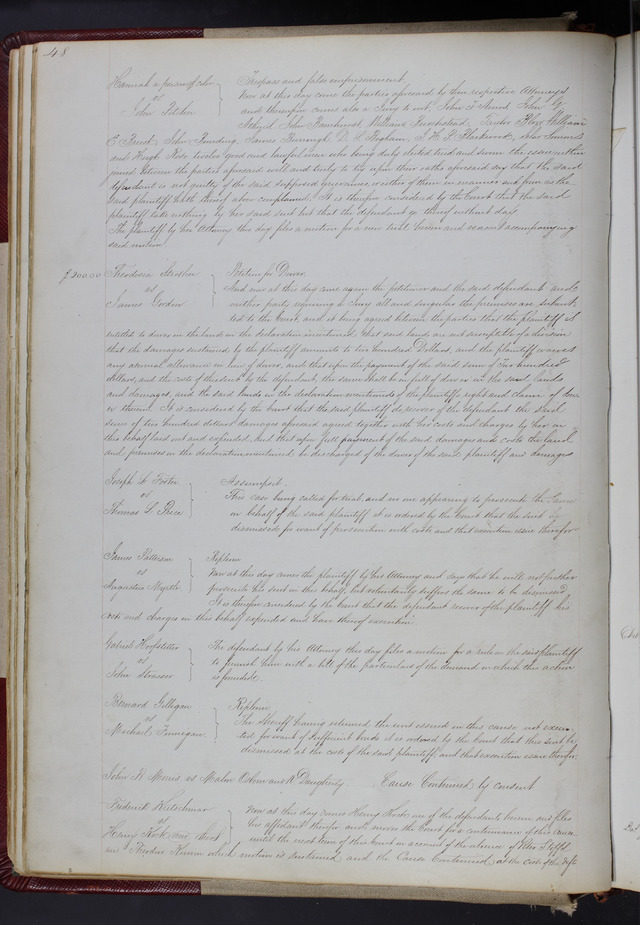 48
Hannah a person of color
vs
John Pitcher
Trespass and false imprisonment.
Now at this day come the parties aforesaid by their respective Attorneys
and thereupon comes also a Jury to wit, John
John William
E John James D. A. J. H.
and Hugh Rose twelve good and lawful men who being duly elected tried and sworn the issue within
joined between the parties aforesaid well and truly to try upon their oaths aforesaid say that the said
defendant is not guilty of the said supposed grievances, or either of them in manner and form as the
said plaintiff hath thereof above complained. It is therefore considered by the Court that the said
plaintiff take nothing by her said suit but that the defendant go thereof without day
The plaintiff by her Attorney this day files a motion for a new trial herein and reasons accompanying
said motion
$200.00 Theodosia
vs
James Gordon
Petition for Dower.
And now at this day come again the petitioner and the said defendant and
neither party requiring a Jury all and singular the premises are submit-
ted to the Court, and it being agreed between the parties that the plaintiff is
entitled to dower in the lands in the declaration mentioned, that said lands are not susceptible of a division
that the damages sustained by the plaintiff amounts to two hundred Dollars, and the plaintiff waives
any annual allowance in lieu of dower, and that upon the payment of the said sum of Two hundred
dollars, and the costs of this suit by the defendant, the same shall be in full of dower in the said lands
and damages, and the said lands in the declaration mentioned of the plaintiffs right and claim of dow-
er therein. It is considered by the Court that the said plaintiff do recover of the defendant the said
sum of two hundred dollars damages aforesaid agreed together with her costs and charges by her in
this behalf laid out and expended. And that upon full payment of the said damages and costs the land
and premises in the declaration mentioned be discharged of the dower of the said plaintiff and damages
Joseph W Foster
vs
Thomas L Price
Assumpsit.
This case being called for trial, and no one appearing to prosecute the same
on behalf of the said plaintiff it is ordered by the Court that the suit be
dismissed for want of prosecution with costs and that execution issue therefor
James Patterson
vs
Augustus
Replevin
Now at this day comes the plaintiff by his Attorney and says that he will not further
prosecute his suit in this behalf, but voluntarily suffers the same to be dismissed
It is therefore considered by the Court that the defendant recover of the plaintiff his
costs and charges in this behalf expended and have thereof execution
Gabriel Hoofstitter
vs
John Strasser
The defendant by his Attorney this day files a motion for a rule on the said plaintiff
to furnish him with a bill of the particulars of the demand on which this action
is founded.
Bernard Gilligan
vs
Michael Finnegan
Replevin
The Sheriff having returned the writ issued in this cause not execu-
ted for want of sufficient bonds it is ordered by the Court that this suit be
dismissed at the costs of the said plaintiff, and that execution issue therefor
John R Morris as Daugherty Cause Continued by consent
Frederick
vs
Henry Kook and
Now at this day comes Henry Kook one of the defendants herein and files
his affidavit therefor and moves the Court for a continuance of this cause
until the next term of this Court on account of the absence of
and Theodore which motion is sustained and the Cause Continued at the costs of the Deft